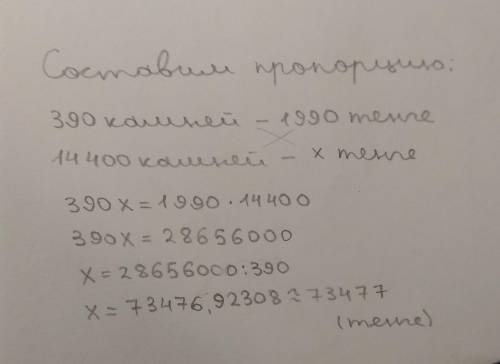 Составим пропорцию:
390 камней – 1990 тенге
14400 камней – x тенге
390x = 1990 · 14400
390x = 28656000
x = 28656000:390
x = 73476,92308 ≈ 73477
(тенге)